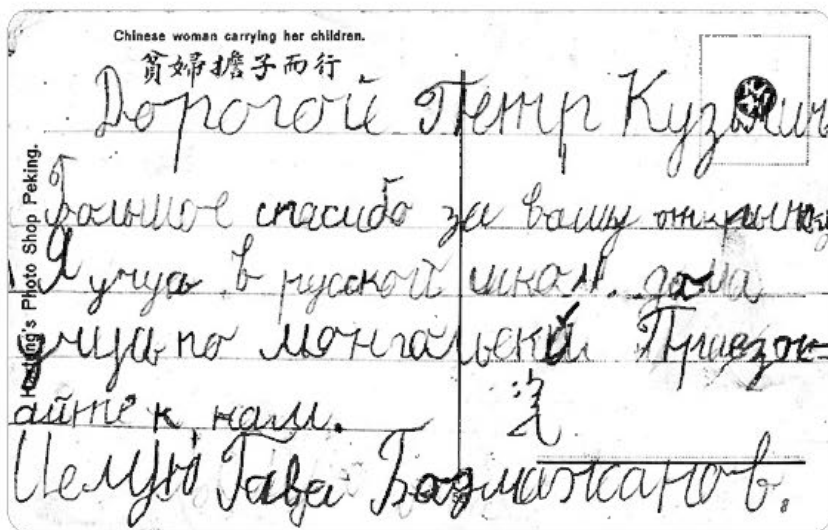 Chinese woman carrying her children.
貧婦擔子而行
Hartung's Photo Shop Peking.
Дорогой Петр Кузьмич
Большое спасибо за вашу открытку
Я учусь в русской школ. дома
учусь по монгальски Приезж-
айте к нам.
Целую Гава Базмажанов.